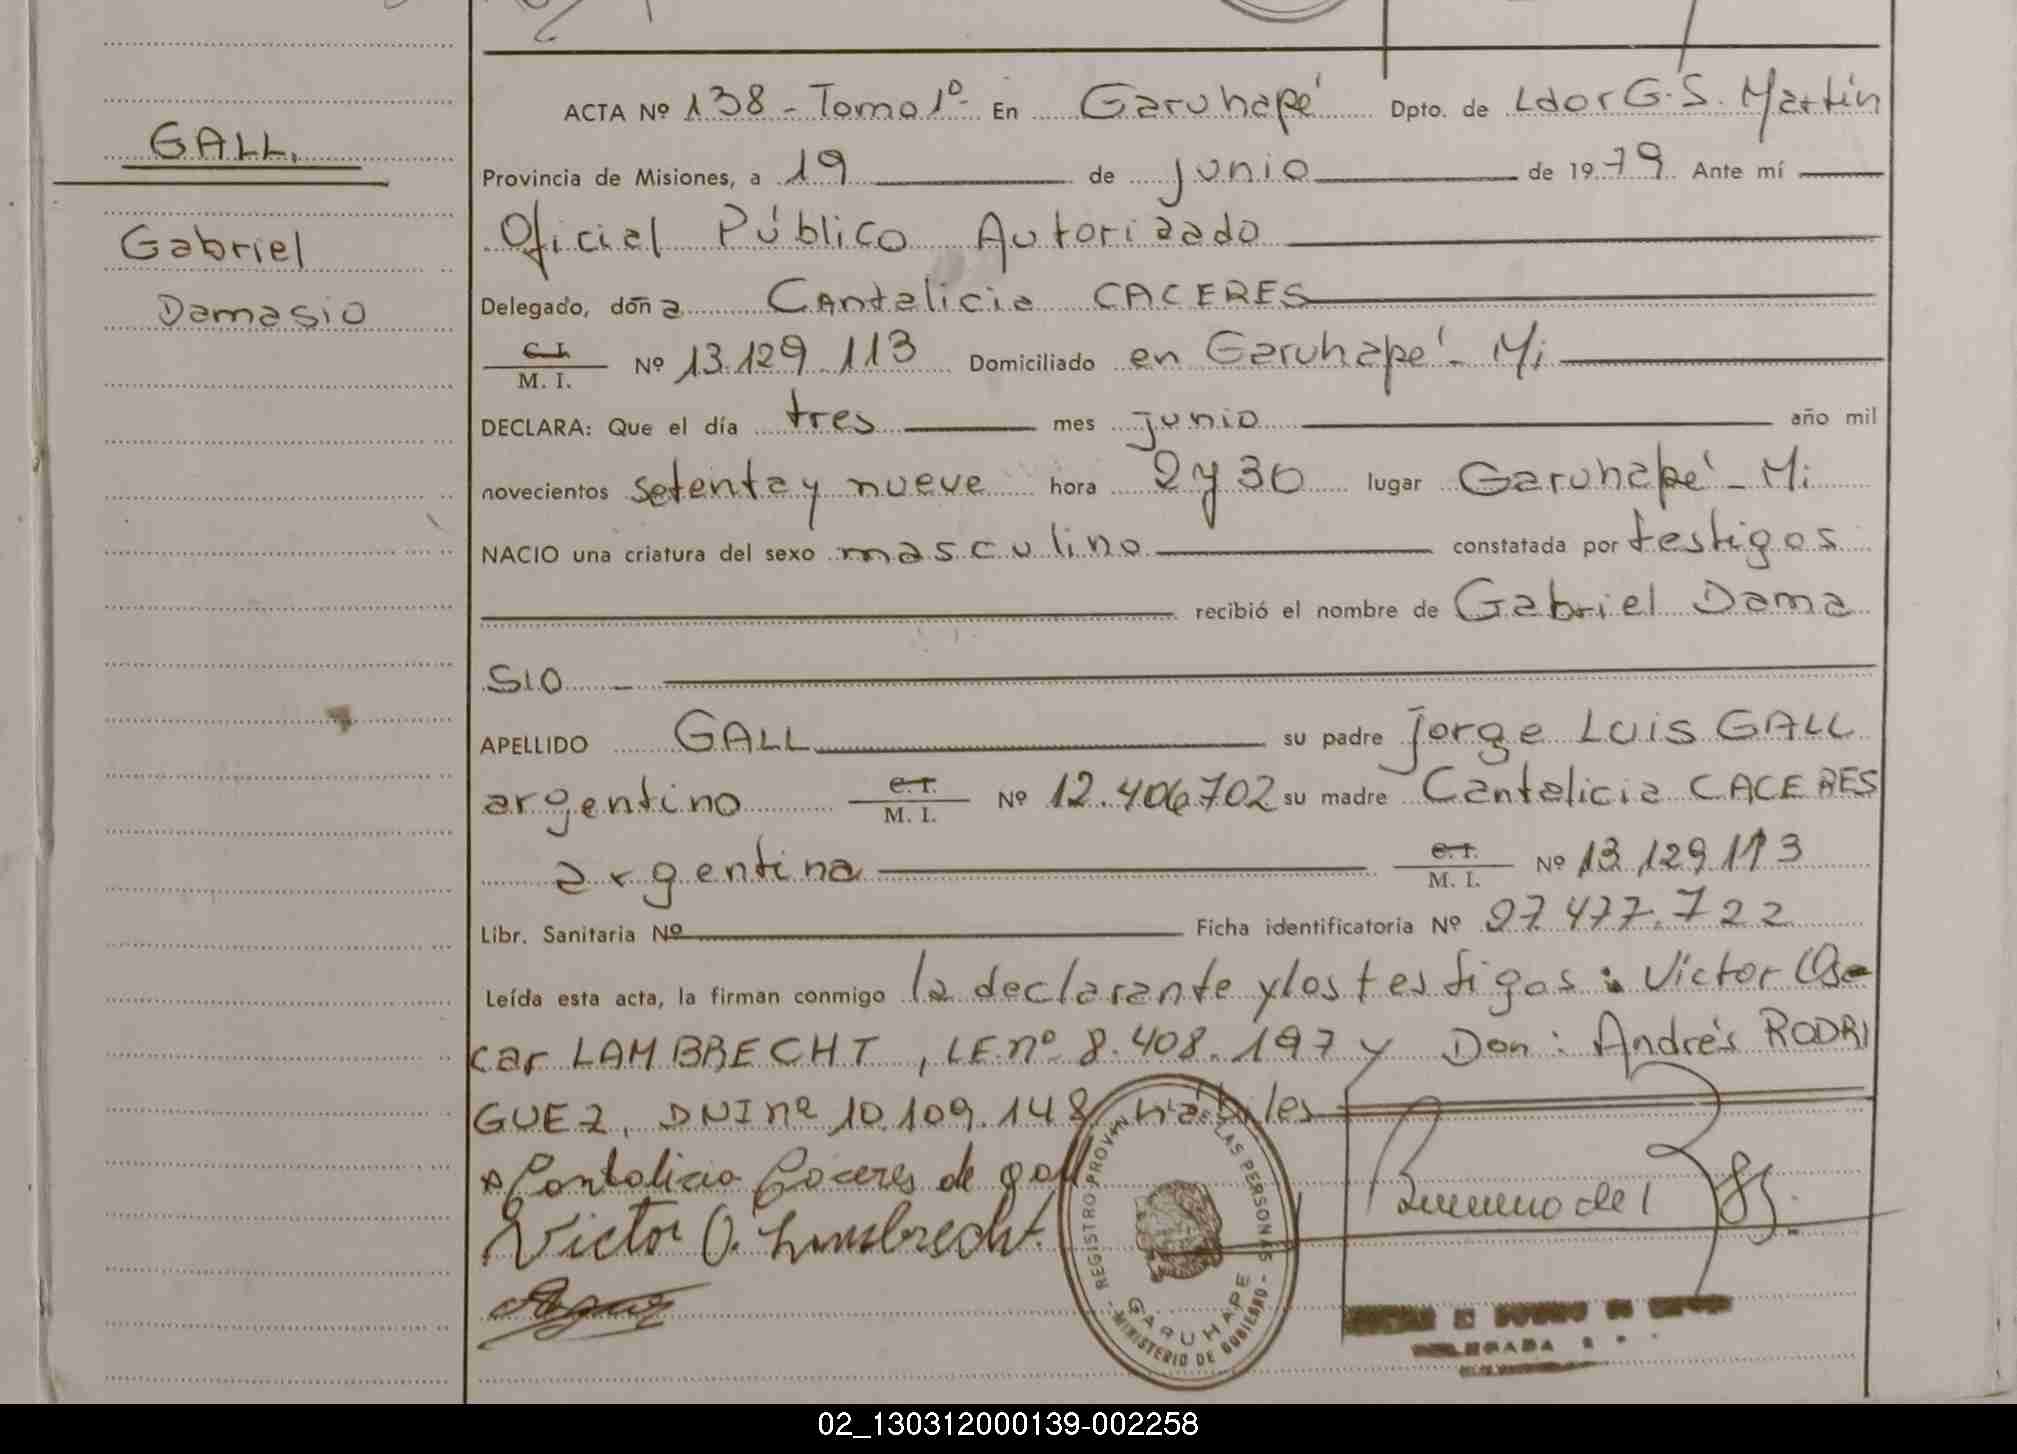 GALL.
Gabriel
Damasio
ACTA Nº 138 - Tomo 1º - En Garuhapé Dpto. de Ldor G. S. Martín
Provincia de Misiones, a 19 de junio de 1979. Ante mí
Oficial Público Autorizado
Delegado, doña Cantalicia CACERES
C.I. / M. I. Nº 13.129.113 Domiciliado en Garuhapé - Mi
DECLARA: Que el día tres mes junio año mil
novecientos setenta y nueve hora 2 y 30 lugar Garuhapé - Mi
NACIO una criatura del sexo masculino constatada por testigos
recibió el nombre de Gabriel Dama
sio
APELLIDO GALL su padre Jorge Luis GALL
argentino C.I. / M. I. Nº 12.406.702 su madre Cantalicia CACERES
argentina C.I. / M. I. Nº 13.129.113
Libr. Sanitaria Nº Ficha identificatoria Nº 27.477.722
Leída esta acta, la firman conmigo la declarante y los testigos: Victor Os
car LAMBRECHT, LE.nº 8.408.197 y Don: Andrés RODRI
GUEZ, DNI nº 10.109.148 hábiles
Cantalicia Caceres de Gall
Victor O. Lambrecht.
REGISTRO PROVIN DE LAS PERSONAS
GARUHAPE
- MINISTERIO DE GOBIERNO -
DELEGADA
02_130312000139-002258